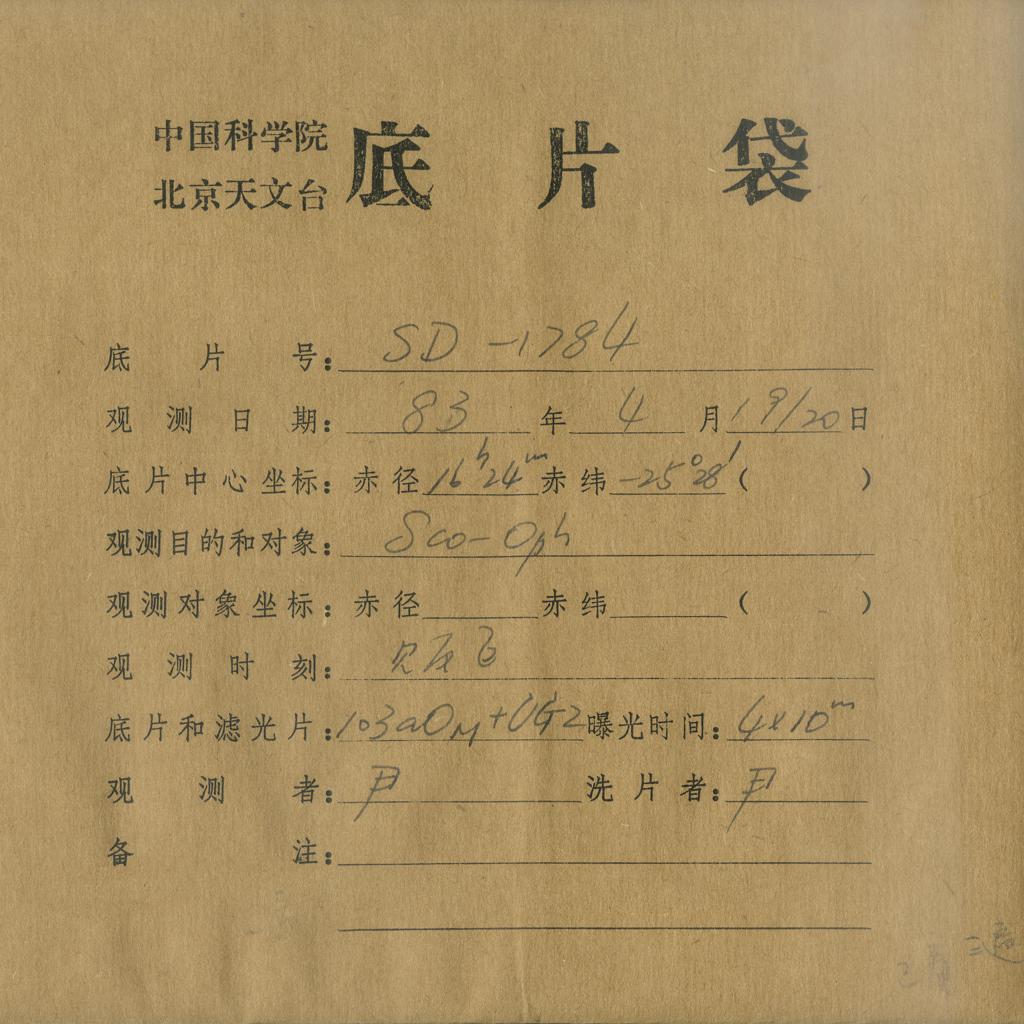 中国科学院
北京天文台
底片袋
底片号：SD-1784
观测日期：83年4月19/20日
底片中心坐标：赤径16h24m赤纬-25°28′（ ）
观测目的和对象：Sco-Oph
观测对象坐标：赤径 赤纬 （ ）
观测时刻：见反面
底片和滤光片：103aOM+UG2曝光时间：4×10m
观测者：尹 洗片者：尹
备注：